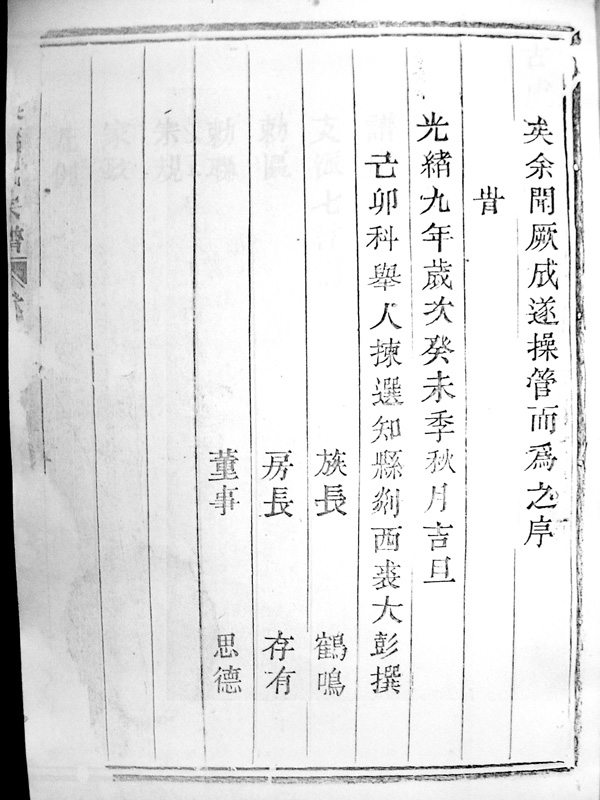 矣余聞厥成遂操管而為之序
旹
光緒九年歲次癸未季秋月吉旦
己卯科舉人揀選知縣剡西裘大彭撰
族長 鶴鳴
房長 存有
董事 思德